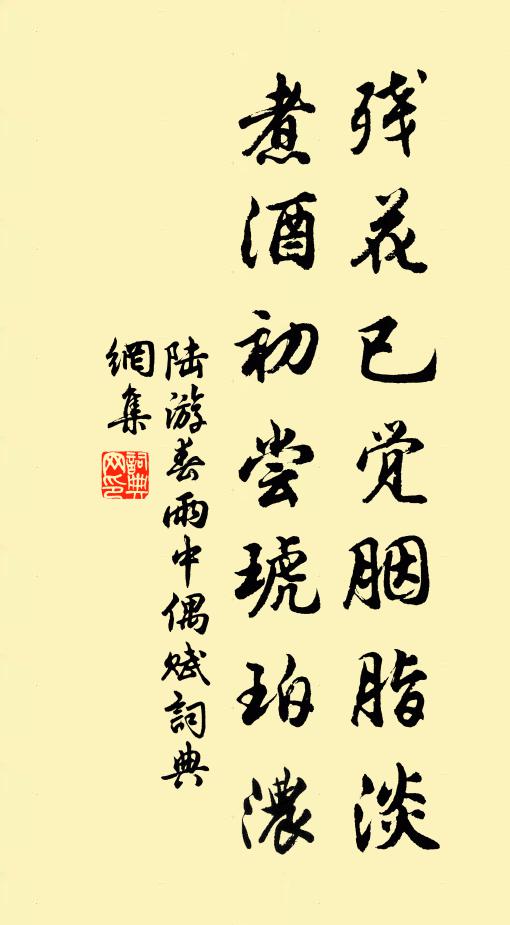 残花已觉胭脂淡
煮酒初尝琥珀濃
陆游春雨中偶赋詞典
網集
詞典网印